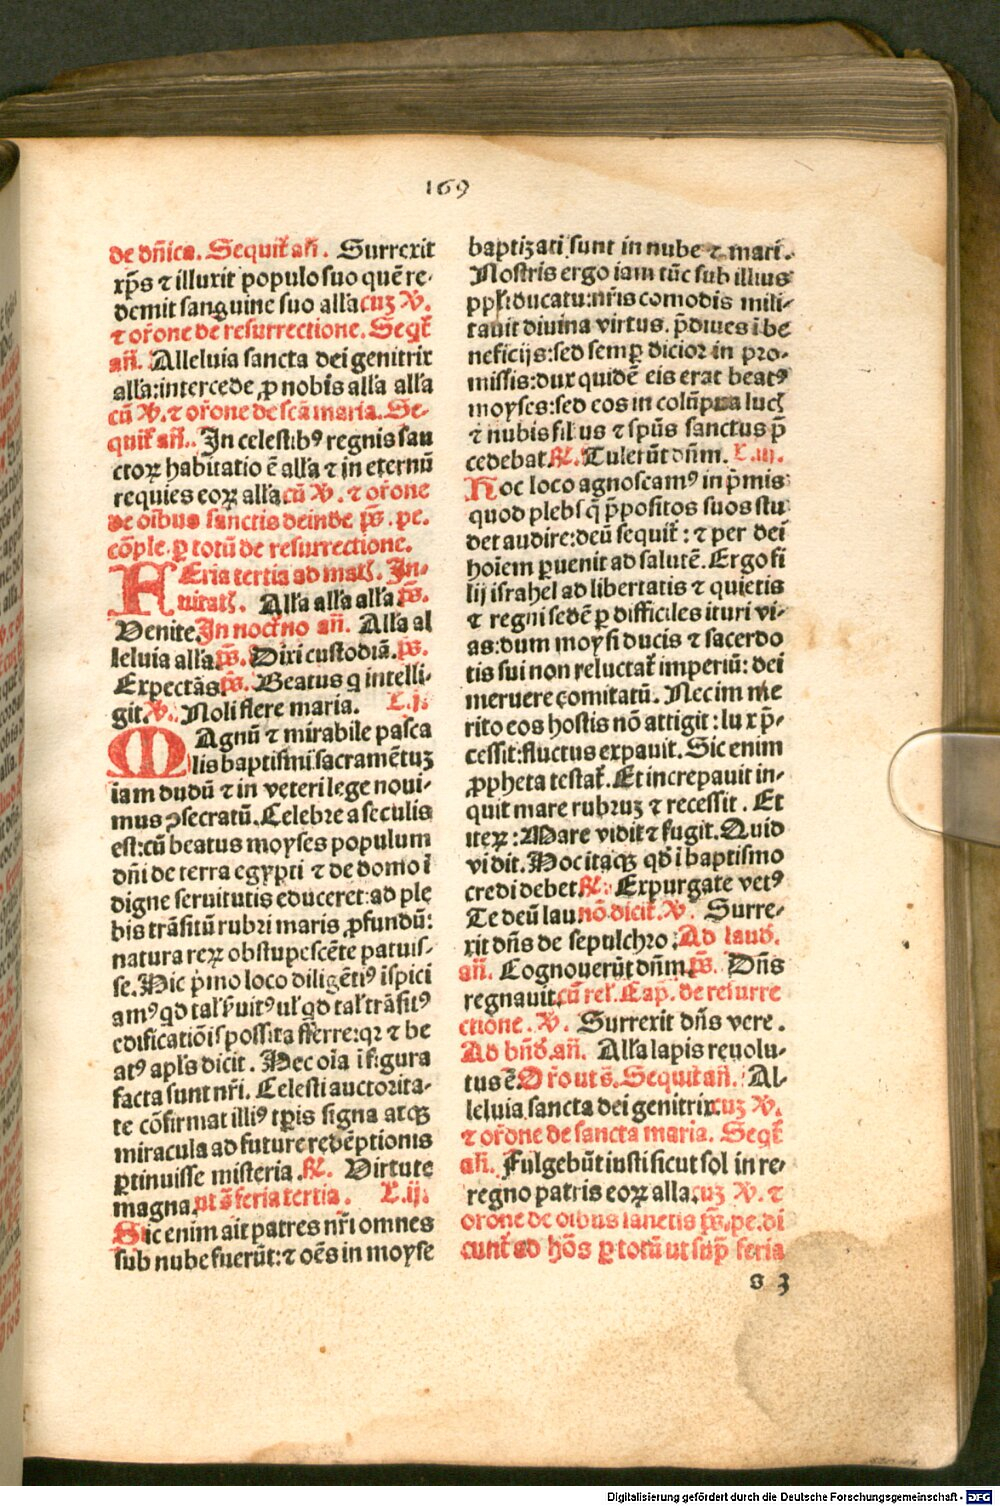 169
de dñica. Sequit̃ añ. Surrexit
xp̃s ⁊ illuxit populo suo quē re-
demit sanguine suo alľa cuȝ ꝟ.
⁊ or̃one de resurrectione. Seqť
añ. Alleluia sancta dei genitrix
alľa: intercede ꝓ nobis alľa alľa
cū ꝟ. ⁊ or̃one de scā maria. Se-
quit̃ añ. In celestibꝰ regnis san
ctoꝝ habitatio ē alľa ⁊ in eternū
requies eoꝝ alľa cū ꝟ. ⁊ or̃one
de oībus sanctis deinde p̃s. pe.
cōple. ꝑ totū de resurrectione.
FEria tertia ad matť. In-
uitatť. Alľa alľa alľa p̃s.
Venite. In nocť̃no añ. Alľa al
leluia alľa. p̃s. Dixi custodiā. p̃s.
Expectās p̃s. Beatus q intelli-
git. ꝟ. Noli flere maria. L.j.
MAgnū ⁊ mirabile pasca
lis baptismi sacramētuȝ
iam dudū ⁊ in veteri lege noui-
mus ꝯsecratū. Celebre a seculis
est: cū beatus moyses populum
dñi de terra egypti ⁊ de domo ī
digne seruitutis educeret: ad ple
bis trāsitū rubri maris ꝓfundū:
natura reꝝ obstupescēte patuis-
se. Hic p̃mo loco diligētiꝰ īspici
amꝰ qd tal' f̃uitꝰ ul' qd tal' trāsitꝰ
edificatiōis possit afferre: qꝛ ⁊ be
atꝰ apl̃s dicit. Hec oīa ī figura
facta sunt nr̃i. Celesti auctorita-
te cōfirmat illiꝰ tp̃is signa atqȝ
miracula ad future redēptionis
ꝑtinuisse misteria. ℟. Virtute
magna. ut s̄ feria tertia. L.ij.
Sic enim ait patres nr̃i omnes
sub nube fuerūt: ⁊ oēs in moyse
baptizati sunt in nube ⁊ mari.
Nostris ergo iam tūc sub illius
pp̃li ducatu: nr̃is comodis mili-
tauit diuina virtus. p̃diues ī be
neficijs: sed semꝑ dicior in pro-
missis: dux quidē eis erat beatꝰ
moyses: sed eos in colūpna lucꝭ
⁊ nubis filius ⁊ sp̃us sanctus p̃
cedebat. ℟. Tulerūt dñm. L.iij.
Hoc loco agnoscamꝰ in p̃mis
quod plebs q̄ p̃positos suos stu
det audire: deū sequit̃: ⁊ per dei
hoīem ꝑuenit ad salutē. Ergo fi
lij israhel ad libertatis ⁊ quietis
⁊ regni sedē ꝑ difficiles ituri vi-
as: dum moysi ducis ⁊ sacerdo
tis sui non reluctat̃ imperiū: dei
meruere comitatū. Nec im me
rito eos hostis nō attigit: lux p̃-
cessit: fluctus expauit. Sic enim
ꝓpheta testat̃. Et increpauit in-
quit mare rubruȝ ⁊ recessit. Et
iteꝝ: Mare vidit ⁊ fugit. Quid
vidit. Hoc itaqȝ qd̄ ī baptismo
credi debet ℟. Expurgate vetꝰ
Te deū lau. nō dicit̃. ꝟ. Surre-
xit dñs de sepulchro. Ad laud.
añ. Cognouerūt dñm. p̃s. Dñs
regnauit. cū rel'. Cap. de resurre
ctione. ꝟ. Surrexit dñs vere.
Ad bñd. añ. Alľa lapis reuolu-
tus ē. Or̃o ut s̄. Sequit̃ añ. Al-
leluia sancta dei genitrix cuȝ ꝟ.
⁊ or̃one de sancta maria. Seqť
añ. Fulgebūt iusti sicut sol in re-
regno patris eoꝝ alľa. cuȝ ꝟ. ⁊
orone de oībus sanctis p̃s. pe. di
cunt̃ ad hōs ꝑ totū ut sup̃ feria
s 3
Digitalisierung gefördert durch die Deutsche Forschungsgemeinschaft - DFG